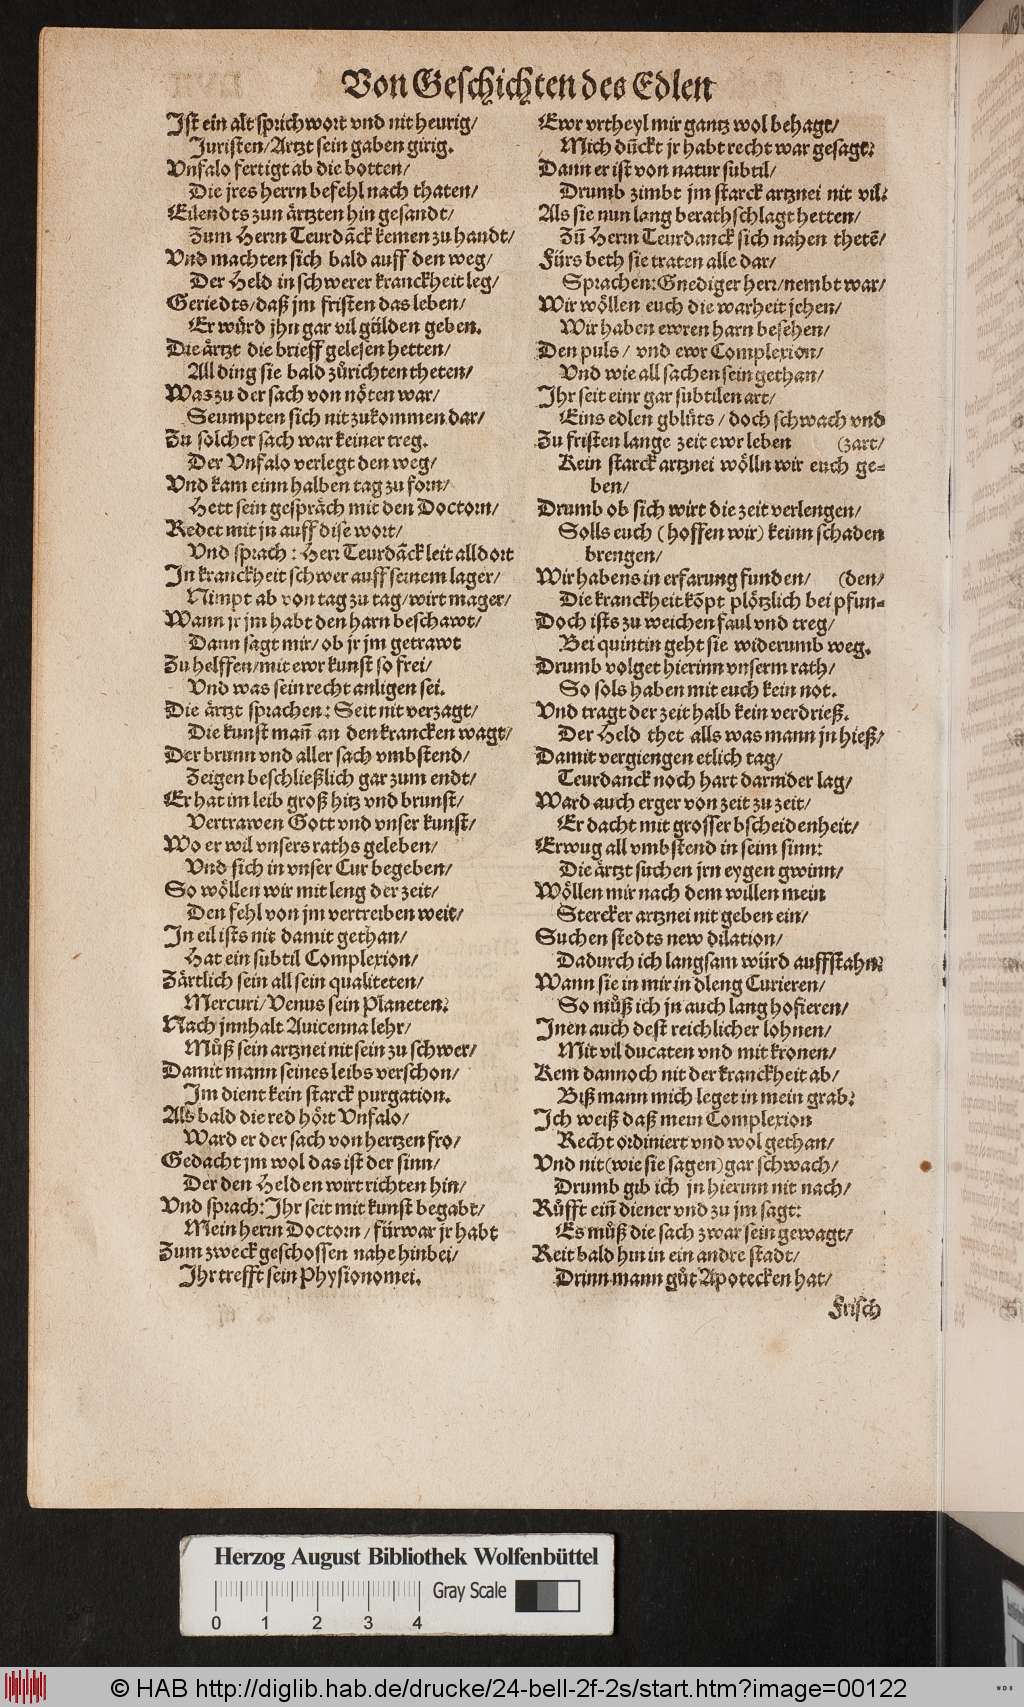 Von Geschichten des Edlen
Ist ein alt sprichwort vnd nit heurig/
Juristen/Artzt sein gaben girig.
Vnfalo fertigt ab die botten/
Die jres herrn befehl nach thaten/
Eilendts zun ärtzten hin gesandt/
Zum Herrn Teurdãck kemen zu handt/
Vnd machten sich bald auff den weg/
Der Held in schwerer kranckheit leg/
Geriedts/daß jm fristen das leben/
Er würd jhn gar vil gülden geben.
Die ärtzt die brieff gelesen hetten/
All ding sie bald zůrichten theten/
Was zu der sach von nöten war/
Seumpten sich nit zukommen dar/
Zu solcher sach war keiner treg.
Der Vnfalo verlegt den weg/
Vnd kam einn halben tag zu forn/
Hett sein gespräch mit den Doctorn/
Redet mit jn auff dise wort/
Vnd sprach: Herr Teurdãck leit alldort
In kranckheit schwer auff seinem lager/
Nimpt ab von tag zu tag/wirt mager/
Wann jr jm habt den harn beschawt/
Dann sagt mir/ ob jr jm getrawt
Zu helffen/mit ewr kunst so frei/
Vnd was sein recht anligen sei.
Die ärtzt sprachen: Seit nit verzagt/
Die kunst mañ an den krancken wagt/
Der brunn vnd aller sach vmbstend/
Zeigen beschließlich gar zum endt/
Er hat im leib groß hitz vnd brunst/
Vertrawen Gott vnd vnser kunst/
Wo er wil vnsers raths geleben/
Vnd sich in vnser Cur begeben/
So wöllen wir mit leng der zeit/
Den fehl von jm vertreiben weit/
In eil ists nit damit gethan/
Hat ein subtil Complexion/
Zärtlich sein all sein qualiteten/
Mercuri/Venus sein Planeten.
Nach jnnhalt Auicenna lehr/
Můß sein artznei nit sein zu schwer/
Damit mann seines leibs verschon/
Im dient kein starck purgation.
Als bald die red hört Vnfalo/
Ward er der sach von hertzen fro/
Gedacht jm wol das ist der sinn/
Der den Helden wirt richten hin/
Vnd sprach: Ihr seit mit kunst begabt/
Mein herrn Doctorn/ fürwar jr habt
Zum zweck geschossen nahe hinbei/
Ihr trefft sein Physionomei.
Ewr vrtheyl mir gantz wol behagt/
Mich dũckt jr habt recht war gesagt:
Dann er ist von natur subtil/
Drumb zimbt jm starck artznei nit vil:
Als sie nun lang berathschlagt hetten/
Zũ Herrn Teurdanck sich nahen thetẽ/
Fürs beth sie traten alle dar/
Sprachen: Gnediger herr/nembt war/
Wir wöllen euch die warheit jehen/
Wir haben ewren harn besehen/
Den puls/ vnd ewr Complexion/
Vnd wie all sachen sein gethan/
Ihr seit einr gar subtilen art/
Eins edlen gblüts/ doch schwach vnd
Zu fristen lange zeit ewr leben (zart/
Kein starck artznei wölln wir euch ge-
ben/
Drumb ob sich wirt die zeit verlengen/
Solls euch (hoffen wir) keinn schaden
brengen/
Wir habens in erfarung funden/ (den/
Die kranckheit kõpt plötzlich bei pfun-
Doch ists zu weichen faul vnd treg/
Bei quintin geht sie widerumb weg.
Drumb volget hierinn vnserm rath/
So sols haben mit euch kein not.
Vnd tragt der zeit halb kein verdrieß.
Der Held thet alls was mann jn hieß/
Damit vergiengen etlich tag/
Teurdanck noch hart darnider lag/
Ward auch erger von zeit zu zeit/
Er dacht mit grosser bscheidenheit/
Erwug all vmbstend in seim sinn:
Die ärtzt suchen jrn eygen gwinn/
Wöllen mir nach dem willen mein
Stercker artznei nit geben ein/
Suchen stedts new dilation/
Dadurch ich langsam würd auffstahn:
Wann sie in mir in dleng Curieren/
So můß ich jn auch lang hofieren/
Inen auch dest reichlicher lohnen/
Mit vil ducaten vnd mit kronen/
Kem dannoch nit der kranckheit ab/
Biß mann mich leget in mein grab:
Ich weiß daß mein Complexion
Recht ordiniert vnd wol gethan/
Vnd nit (wie sie sagen) gar schwach/
Drumb gib ich jn hierinn nit nach/
Růfft eiñ diener vnd zu jm sagt:
Es můß die sach zwar sein gewagt/
Reit bald hin in ein andre stadt/
Drinn mann gůt Apotecken hat/
Frisch
Herzog August Bibliothek Wolfenbüttel
Gray Scale
0 1 2 3 4
© HAB http://diglib.hab.de/drucke/24-bell-2f-2s/start.htm?image=00122